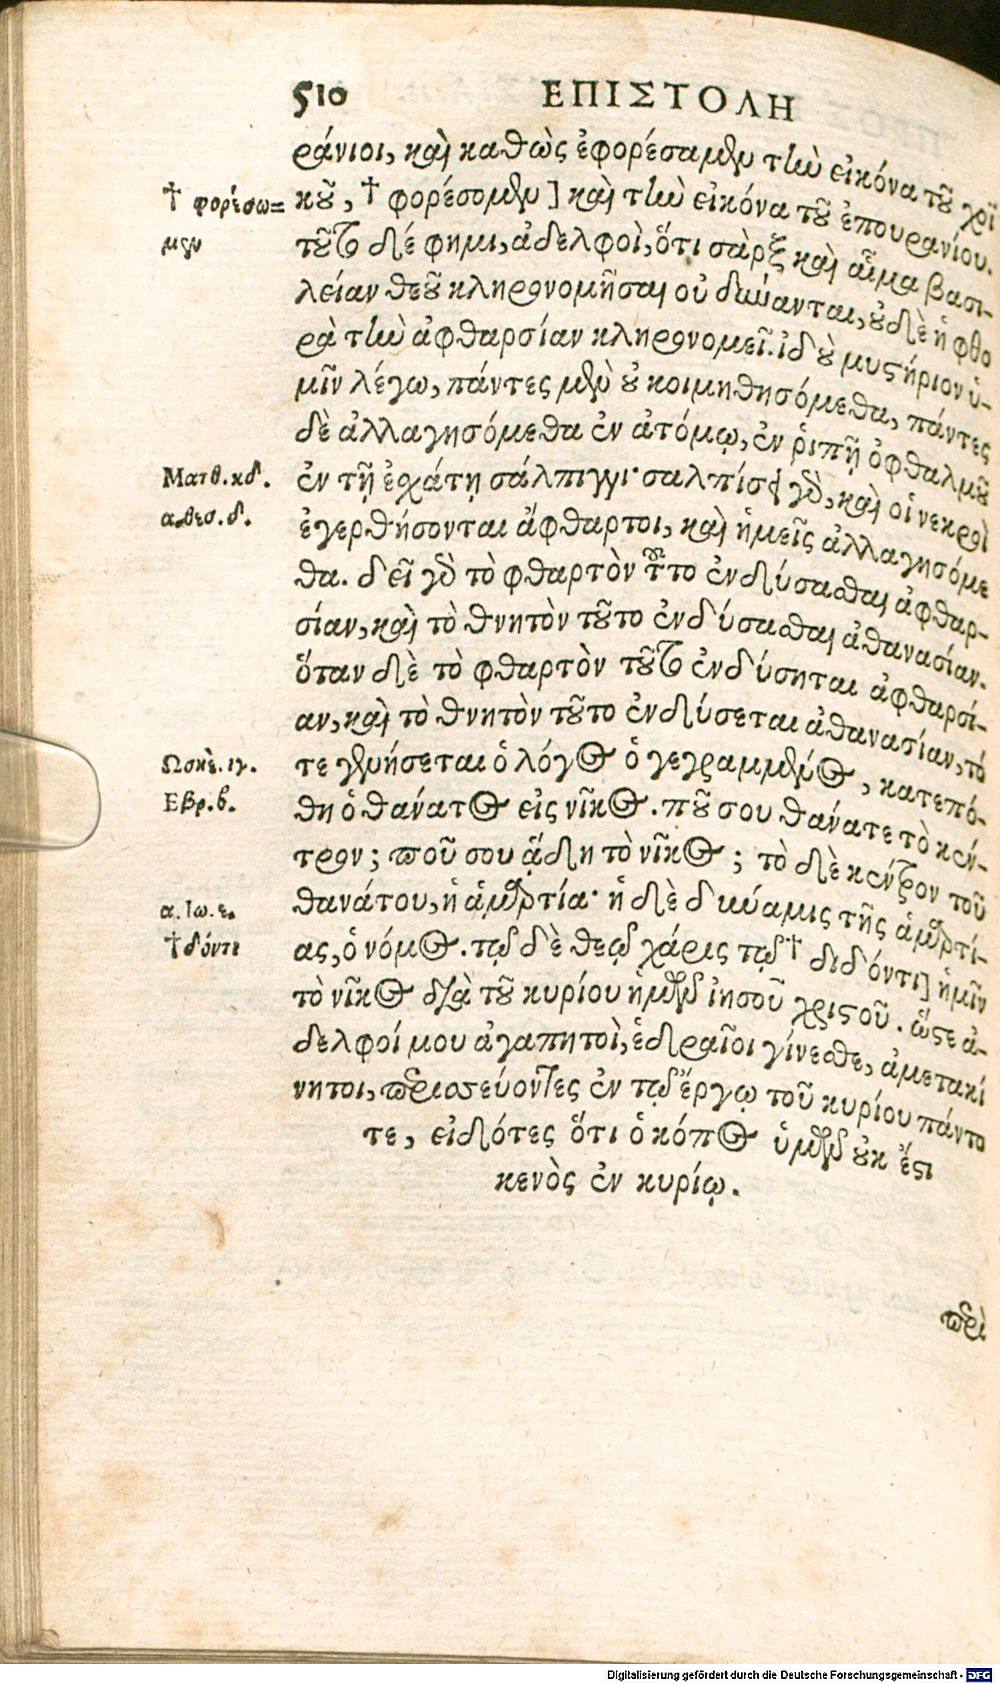 510 ΕΠΙΣΤΟΛΗ
ράνιοι, καὶ καθὼς ἐφορέσαμεν τὴν εἰκόνα τοῦ χοϊ
† φορέσω=
κοῦ, † φορέσομεν] καὶ τὴν εἰκόνα τοῦ ἐπουρανίου.
μεν
τοῦτο δέ φημι, ἀδελφοὶ, ὅτι σὰρξ καὶ αἷμα βασι-
λείαν θεοῦ κληρονομῆσαι οὐ δύνανται, οὐδὲ ἡ φθο
ρὰ τὴν ἀφθαρσίαν κληρονομεῖ. ἰδοὺ μυστήριον ὑ-
μῖν λέγω, πάντες μὲν οὐ κοιμηθησόμεθα, πάντες
δὲ ἀλλαγησόμεθα ἐν ἀτόμῳ, ἐν ῥιπῇ ὀφθαλμοῦ
Ματθ. κδ.
ἐν τῇ ἐσχάτῃ σάλπιγγι· σαλπίσει γὰρ, καὶ οἱ νεκροὶ
α. θεσ. δ.
ἐγερθήσονται ἄφθαρτοι, καὶ ἡμεῖς ἀλλαγησόμε
θα. δεῖ γὰρ τὸ φθαρτὸν τοῦτο ἐνδύσασθαι ἀφθαρ-
σίαν, καὶ τὸ θνητὸν τοῦτο ἐνδύσασθαι ἀθανασίαν.
ὅταν δὲ τὸ φθαρτὸν τοῦτο ἐνδύσηται ἀφθαρσί-
αν, καὶ τὸ θνητὸν τοῦτο ἐνδύσεται ἀθανασίαν, τό
Ωσηὲ. ιγ.
τε γενήσεται ὁ λόγος ὁ γεγραμμένος, κατεπό-
Εβρ. β.
θη ὁ θάνατος εἰς νῖκος. ποῦ σου θάνατε τὸ κέν-
τρον; ποῦ σου ᾅδη τὸ νῖκος; τὸ δὲ κέντρον τοῦ
α. Ιω. ε.
θανάτου, ἡ ἁμαρτία· ἡ δὲ δύναμις τῆς ἁμαρτί-
† δόντι
ας, ὁ νόμος. τῷ δὲ θεῷ χάρις τῷ † διδόντι] ἡμῖν
τὸ νῖκος διὰ τοῦ κυρίου ἡμῶν ἰησοῦ χριστοῦ. ὥστε ἀ-
δελφοί μου ἀγαπητοὶ, ἑδραῖοι γίνεσθε, ἀμετακί
νητοι, περισσεύοντες ἐν τῷ ἔργῳ τοῦ κυρίου πάντο
τε, εἰδότες ὅτι ὁ κόπος ὑμῶν οὐκ ἔστι
κενὸς ἐν κυρίῳ.
περὶ
Digitalisierung gefördert durch die Deutsche Forschungsgemeinschaft - DFG